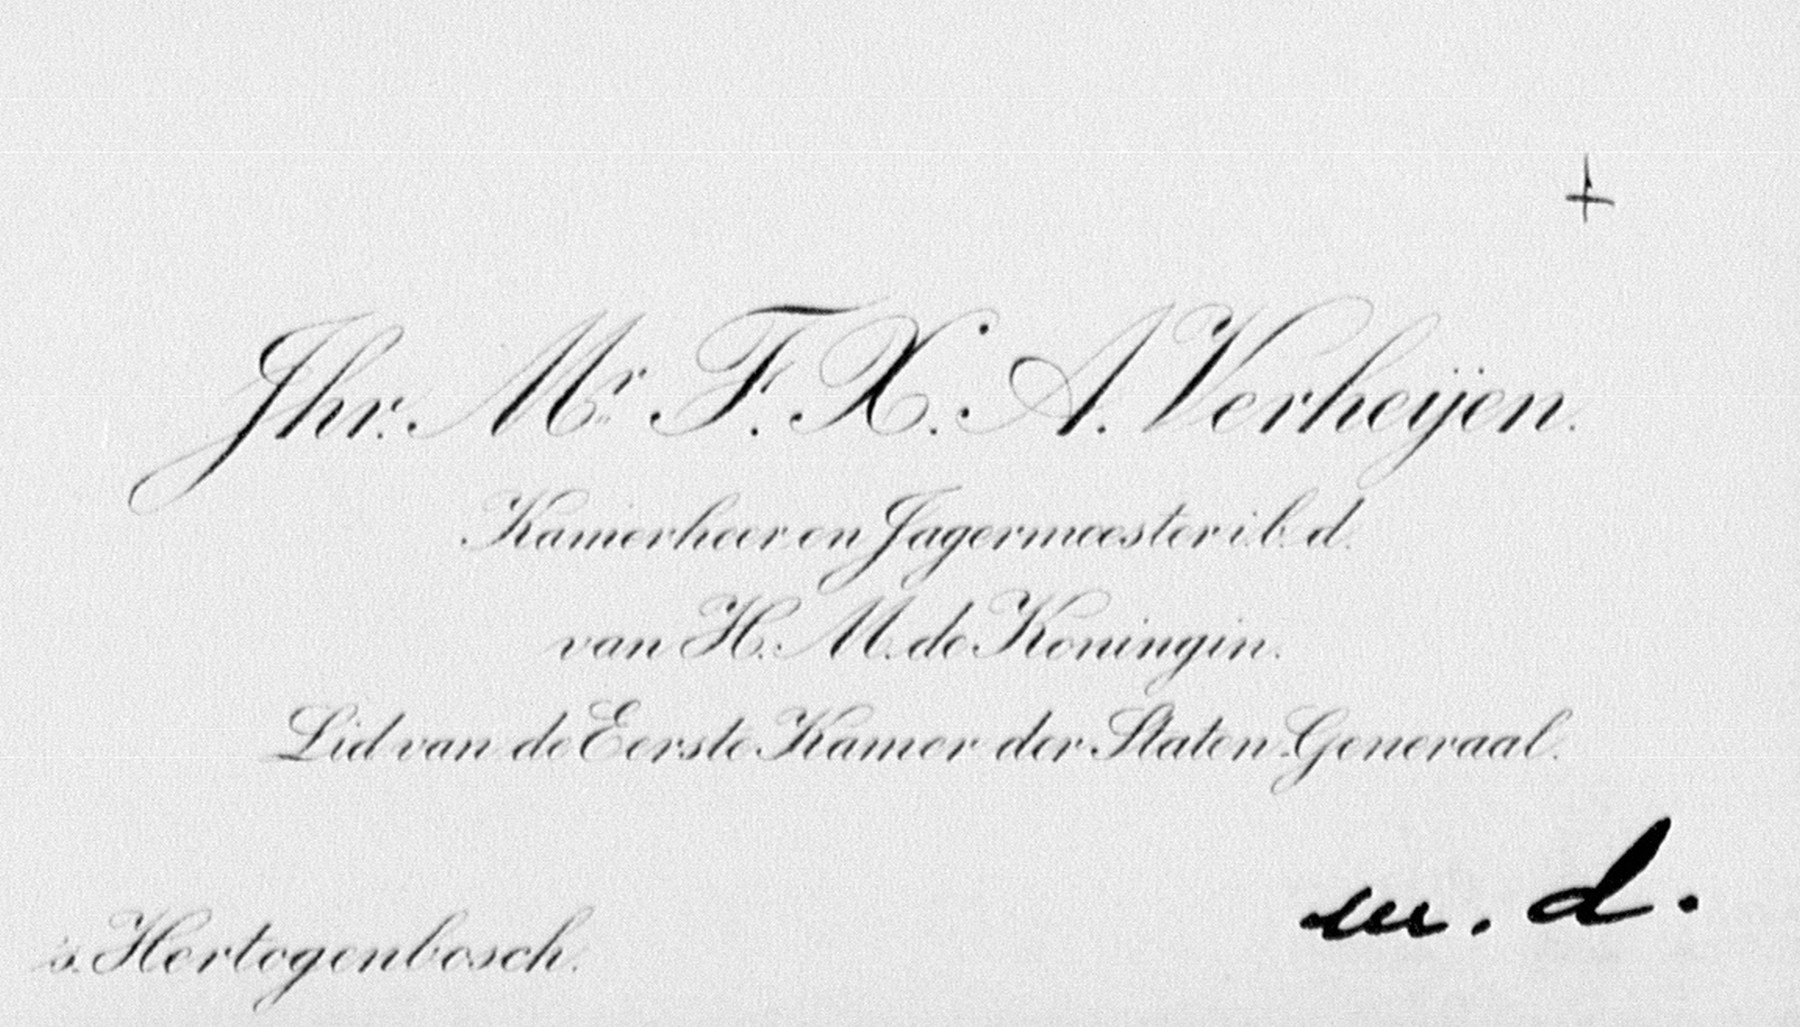 +
Jhr. Mr. F. X. A. Verheijen.
Kamerheer en Jagermeester i. b. d.
van H. M. de Koningin.
Lid van de Eerste Kamer der Staten-Generaal.
m. d.
's Hertogenbosch.